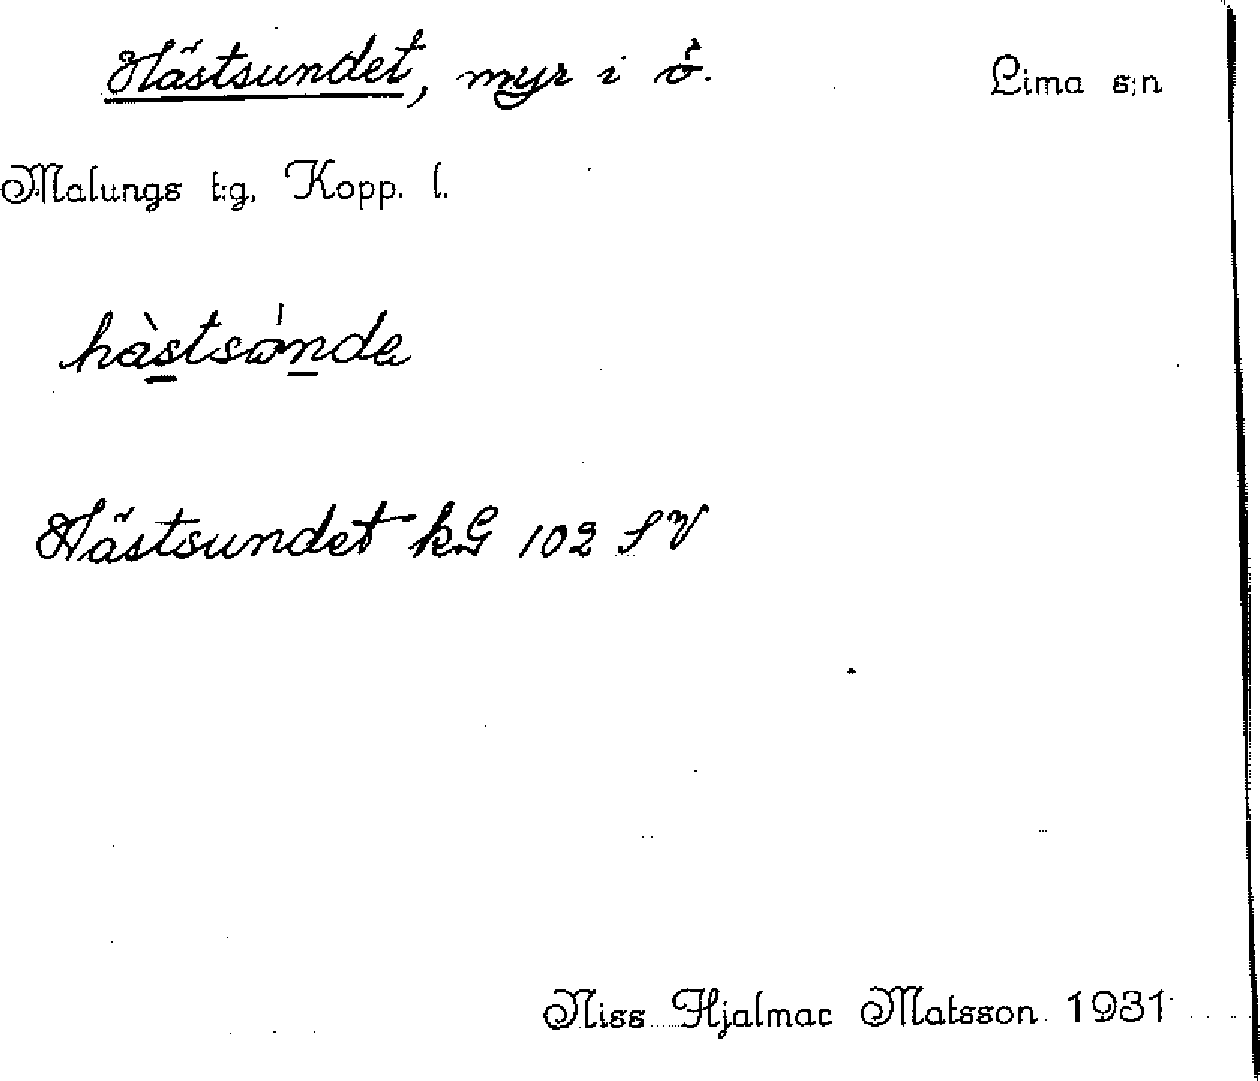 Hästsundet, myr i ö. Lima s:n
Malungs t:g, Kopp. l.
hàstsǿnda
Hästsundet kG 102 SV
Niss Hjalmar Matsson 1931